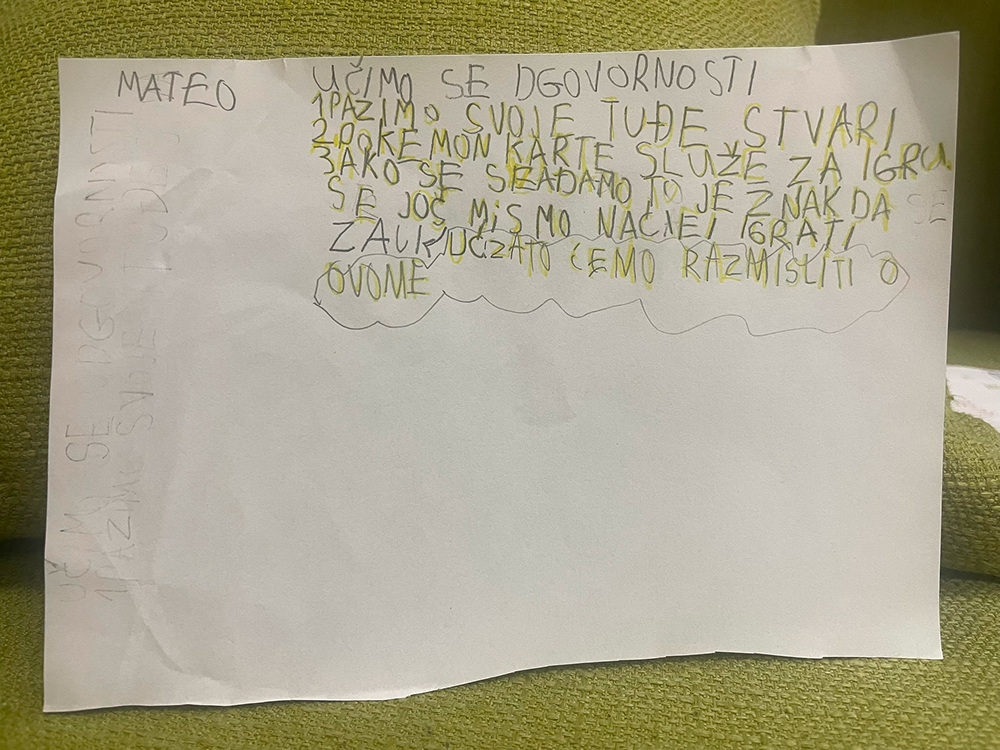 MATEO
UČIMO SE DGOVORNOSTI
1 PAZIMO SVOJE TUĐE STVARI
2 POKEMON KARTE SLUŽE ZA IGRU
3 AKO SE SEAĐAMO TO JE ZNAK DA SE
SE JOŠ MISMO NAČNEI IGRATI
ZATO ĆEMO RAZMISLITI O
OVOME
UČIMO SE DGOVORNISTI
1 PAZIMO SVOJE TUĐE